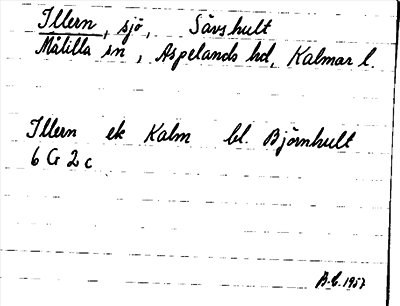 Illern, sjö, Sävshult
Målilla sn, Aspelands hd, Kalmar l.
Illern ek Kalm bl. Björnhult
6 G 2 c
B.E. 1957